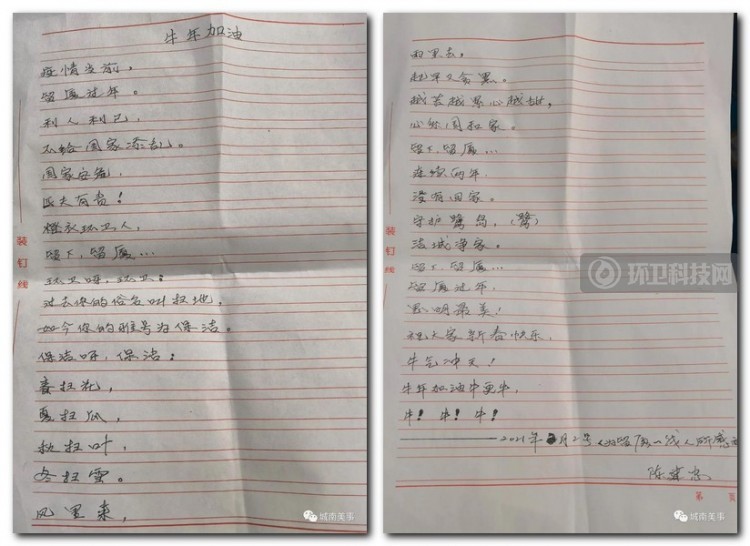 牛年加油
疫情没前，
留厦过年。
利人利己，
不给国家添乱。
国家安危，
匹夫有责！
橙衣环卫人，
留下，留厦…
环卫呀，环卫：
过去你的俗名叫扫地，
如今你的雅号为保洁。
保洁呀，保洁：
春扫花，
夏扫瓜，
秋扫叶，
冬扫雪。
风里来，
装订线
城南美事
雨里去，
起早又贪黑。
越苦越累心越甜，
心怀国和家。
留下，留厦…
疫续的年
没有回家。
守护鹭岛，（鹭）
洁城净家。
留下，留厦…
留厦过年，
思明最美！
祝大家新春快乐，
牛气冲天！
牛年加油牛更牛，
牛！牛！牛！
2021年 月2号 留厦一线人所感
陈
装订线
第 页
环卫科技网
城南美事